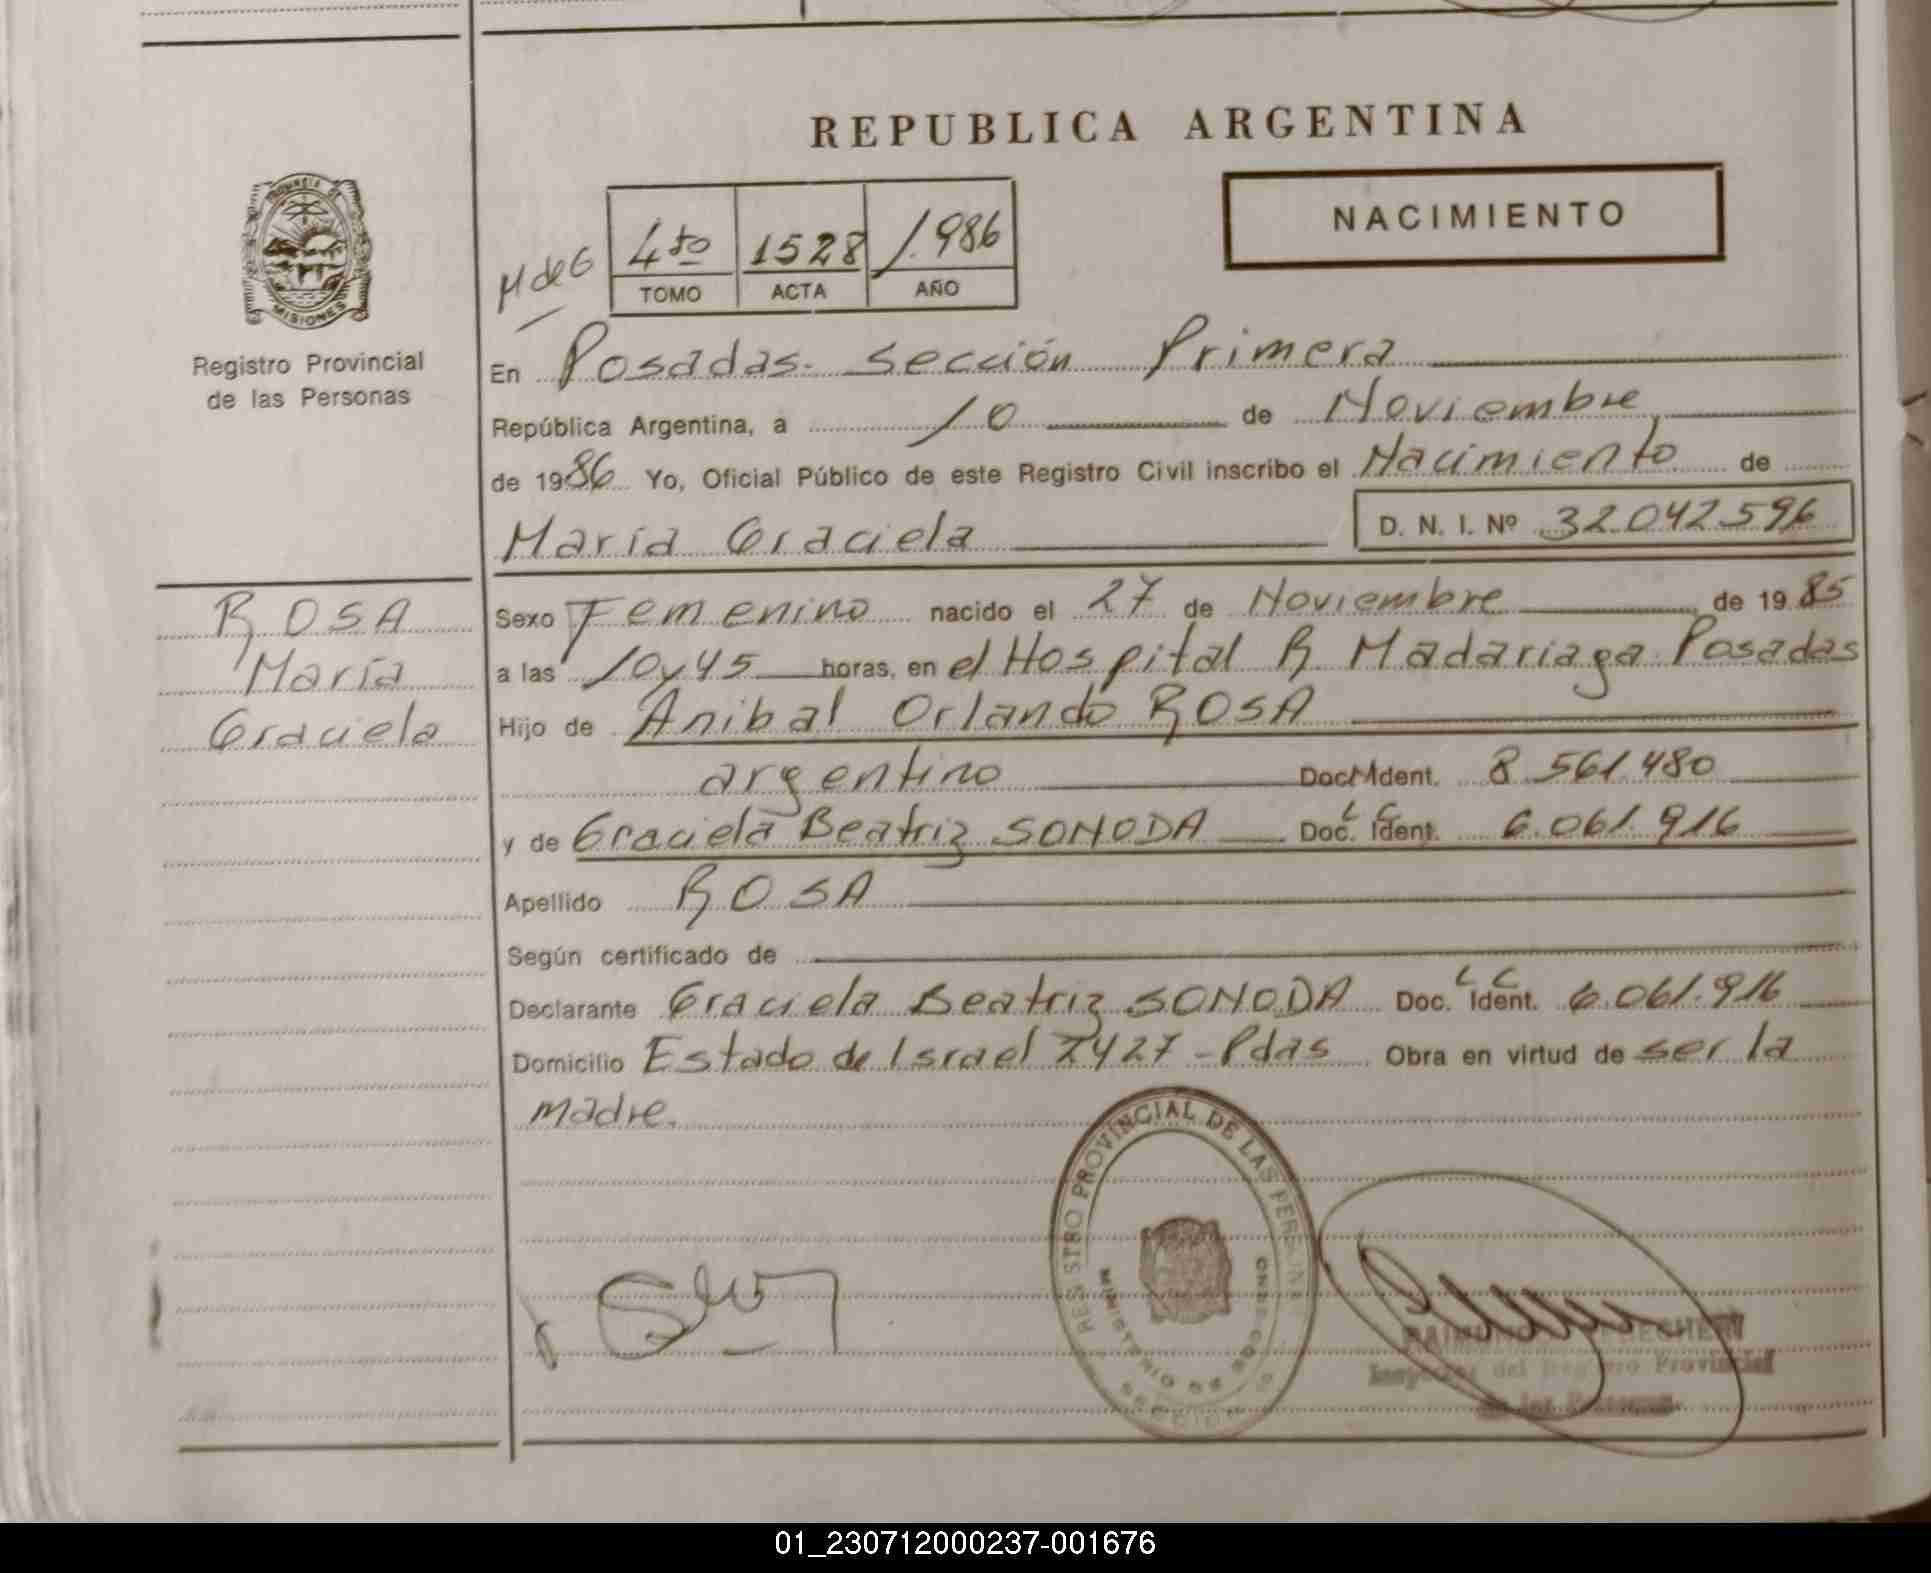 REPUBLICA ARGENTINA
NACIMIENTO
PROVINCIA DE
MISIONES
Registro Provincial
de las Personas
M de G
4to 1528 1.986
TOMO ACTA AÑO
En Posadas. Sección Primera
República Argentina, a 10 de Noviembre
de 1986 Yo, Oficial Público de este Registro Civil inscribo el Nacimiento de
María Graciela D. N. I. Nº 32.042.596
ROSA
María
Graciela
Sexo Femenino nacido el 27 de Noviembre de 1985
a las 10 y 45 horas, en el Hospital R. Madariaga Posadas
Hijo de Anibal Orlando ROSA
argentino Doc. Ident. 8.561.480
y de Graciela Beatriz SONODA L C Doc. Ident. 6.061.916
Apellido ROSA
Según certificado de
Declarante Graciela Beatriz SONODA L C Doc. Ident. 6.061.916
Domicilio Estado de Israel 2427 - Pdas Obra en virtud de ser la
madre.
REGISTRO PROVINCIAL DE LAS PERSONAS
MINISTERIO DE GOBIERNO
SECCION
del Registro Provincial
de las Personas
01_230712000237-001676